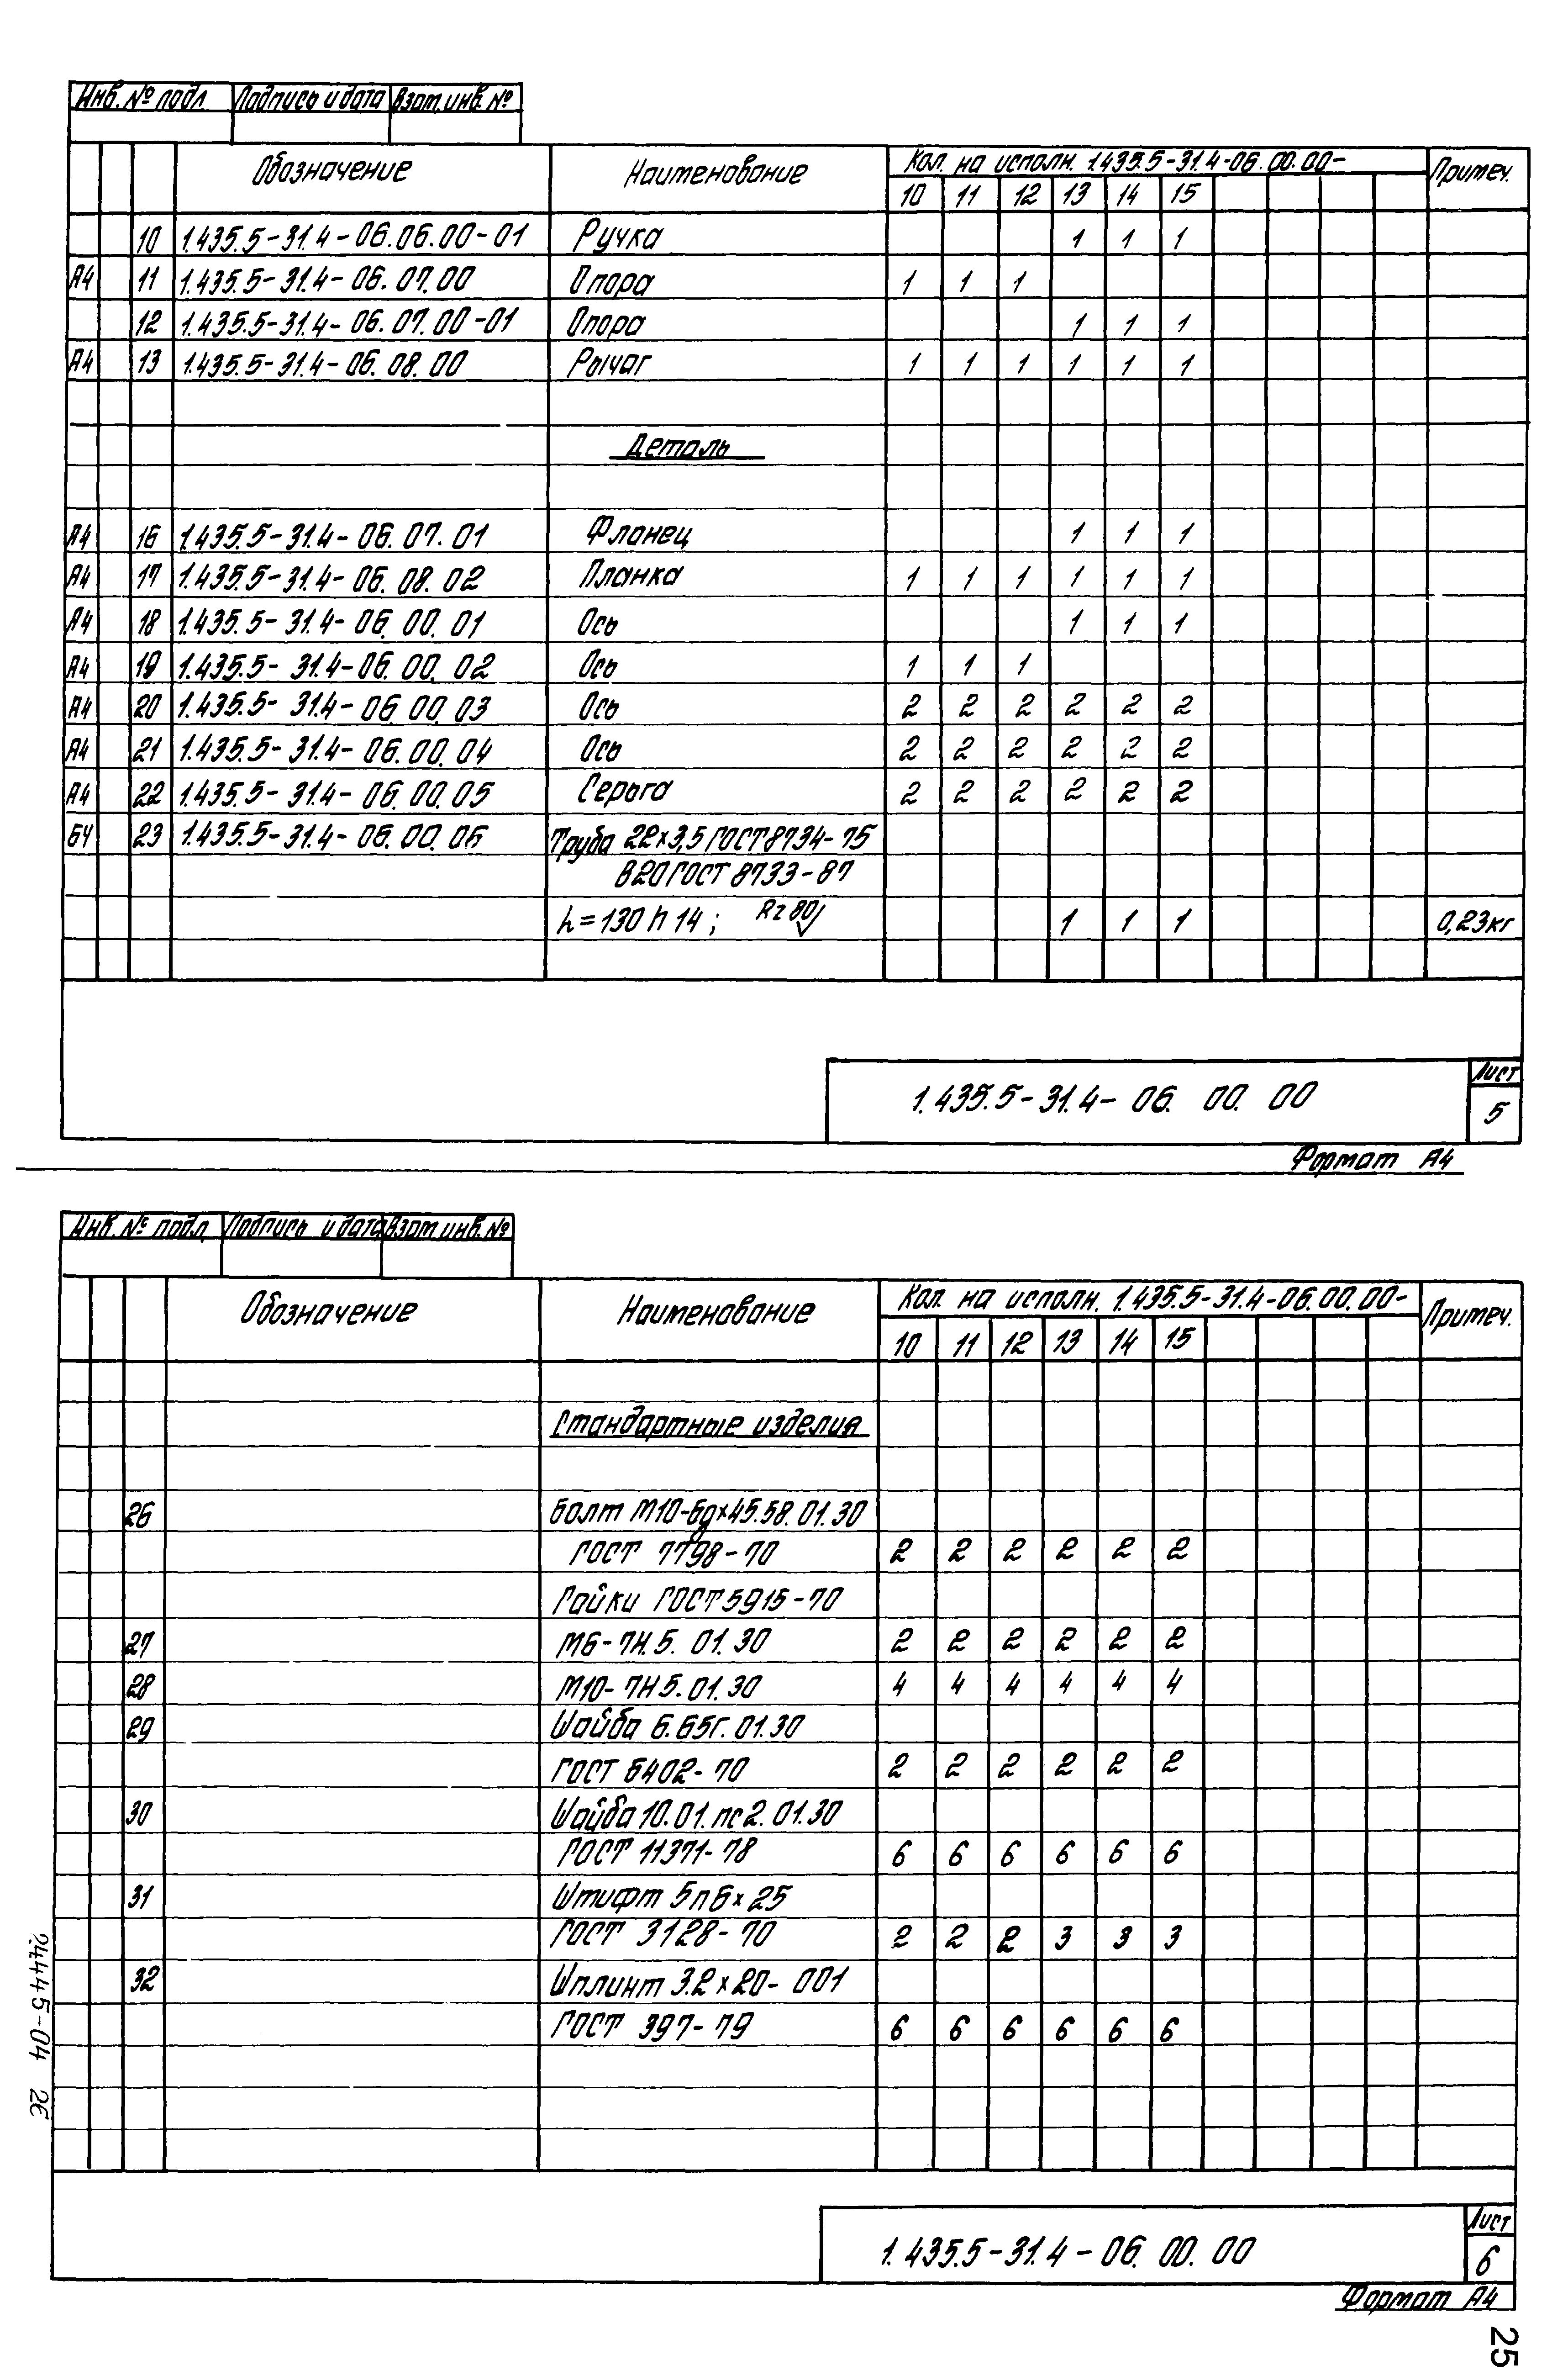 Инв. № подл. Подпись и дата Взам. инв. №
Обозначение Наименование Кол. на исполн. 1.435.5-31.4-06.00.00- Примеч.
10 11 12 13 14 15
10 1.435.5-31.4-06.06.00-01 Ручка 1 1 1
А4 11 1.435.5-31.4-06.07.00 Опора 1 1 1
12 1.435.5-31.4-06.07.00-01 Опора 1 1 1
А4 13 1.435.5-31.4-06.08.00 Рычаг 1 1 1 1 1 1
Деталь
А4 16 1.435.5-31.4-06.07.01 Фланец 1 1 1
А4 17 1.435.5-31.4-06.08.02 Планка 1 1 1 1 1 1
А4 18 1.435.5-31.4-06.00.01 Ось 1 1 1
А4 19 1.435.5-31.4-06.00.02 Ось 1 1 1
А4 20 1.435.5-31.4-06.00.03 Ось 2 2 2 2 2 2
А4 21 1.435.5-31.4-06.00.04 Ось 2 2 2 2 2 2
А4 22 1.435.5-31.4-06.00.05 Серьга 2 2 2 2 2 2
БЧ 23 1.435.5-31.4-06.00.06 Труба 22×3,5 ГОСТ 8734-75
В20 ГОСТ 8733-87
h=130 h 14; Rz 80 1 1 1 0,23кг
1.435.5-31.4-06.00.00
Лист
5
Формат А4
Инв. № подл. Подпись и дата Взам. инв. №
Обозначение Наименование Кол. на исполн. 1.435.5-31.4-06.00.00- Примеч.
10 11 12 13 14 15
Стандартные изделия
26 Болт М10-6g×45.58.01.30
ГОСТ 7798-70 2 2 2 2 2 2
Гайки ГОСТ 5915-70
27 М6-7Н.5.01.30 2 2 2 2 2 2
28 М10-7Н5.01.30 4 4 4 4 4 4
29 Шайба 6.65Г.01.30
ГОСТ 6402-70 2 2 2 2 2 2
30 Шайба 10.01.пс2.01.30
ГОСТ 11371-78 6 6 6 6 6 6
31 Штифт 5п6×25
ГОСТ 3128-70 2 2 2 3 3 3
32 Шплинт 3.2×20-001
ГОСТ 397-79 6 6 6 6 6 6
1.435.5-31.4-06.00.00
Лист
6
Формат А4
24445-04 26
25